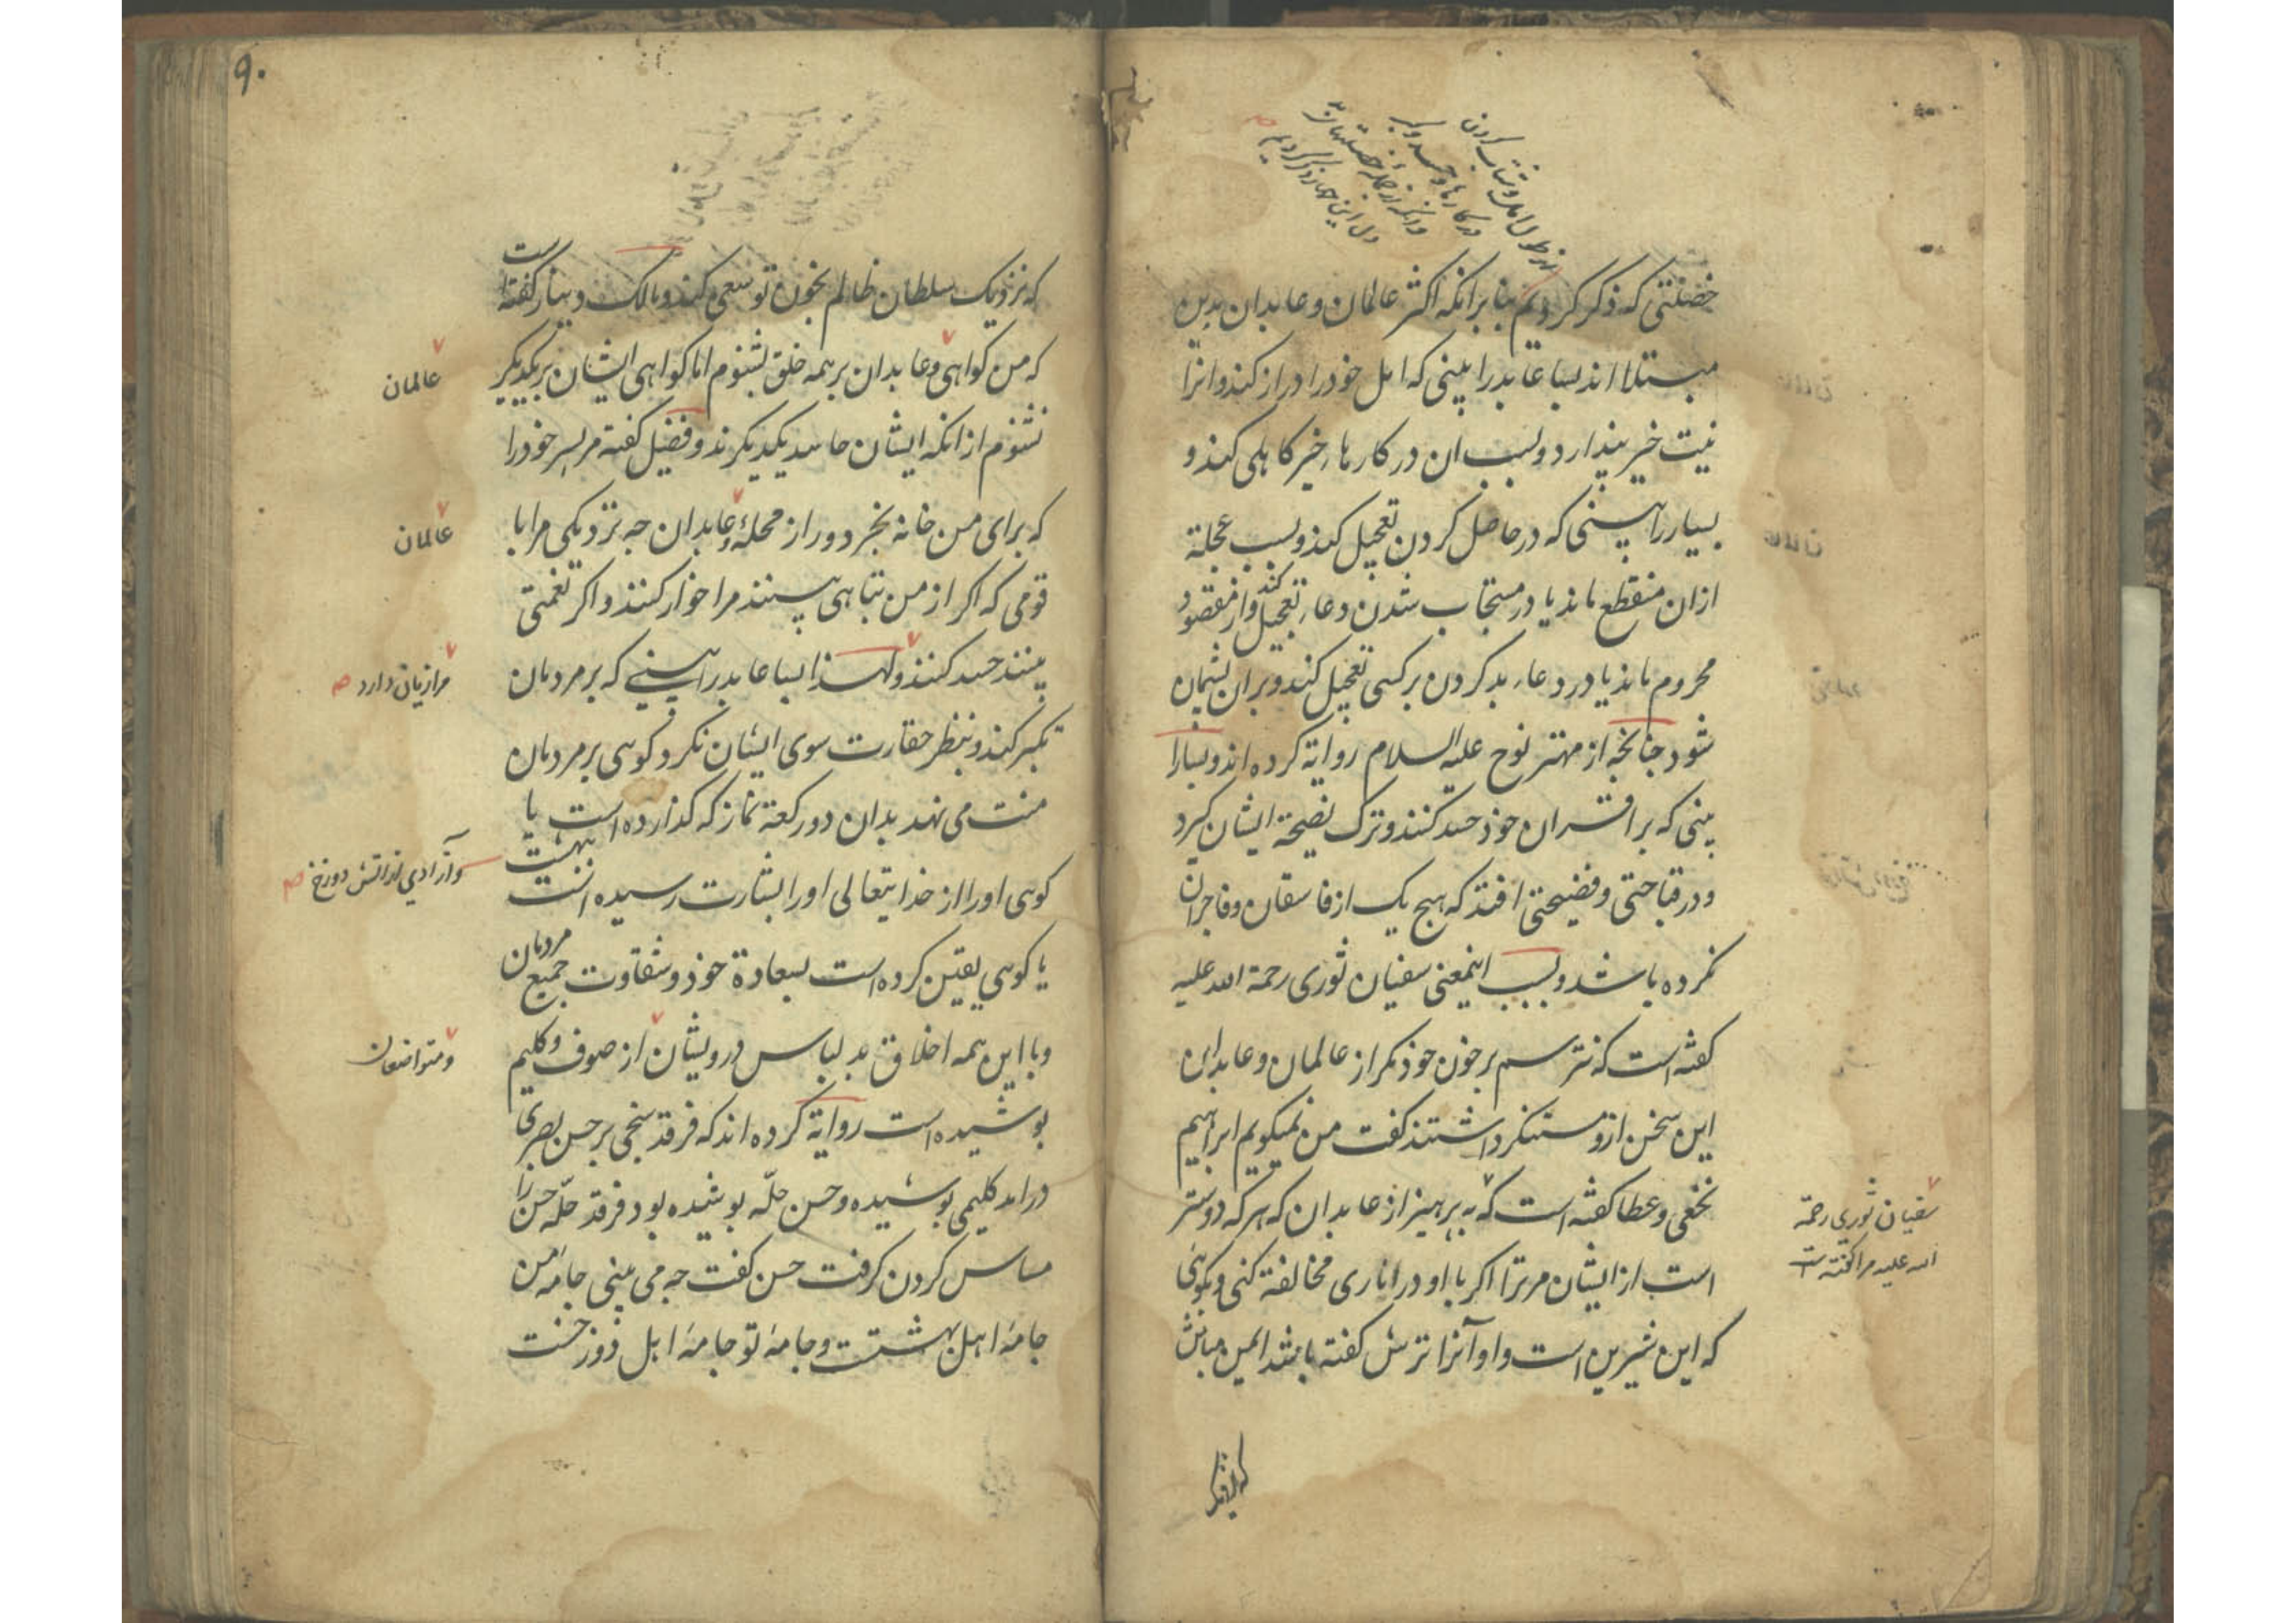 خصلتی که ذکر کردیم بنا برانکه اکثر عالمان و عابدان بدین
مبتلا اند بسا عابد را بینی که امل خود را دراز کند و انرا
نیت خیر پندارد و بسبب ان در کارهاء خیر کاهلی کند و
بسیار را بینی که در حاصل کردن تعجیل کند و بسبب عجلة
ازان منقطع ماند یا در مستجاب شدن دعاء تعجیل کند و از مقصود
محروم ماند یا در دعاء بد کردن بر کسی تعجیل کند و بران پشیمان
شود جنانجه از مهتر نوح علیه السلام روایة کرده اند و بسیار را
بینی که بر اقران خوذ حسد کنند و ترک نصیحة ایشان کیرد
و در قباحتی و فضیحتی افتد که هیج یک از فاسقان و فاجران
نکرده باشد و بسبب اینمعنی سفیان ثوری رحمة الله علیه
کفته است که نترسم بر خون خوذ مکر از عالمان و عابدان
این سخن ازو مستنکر داشتند کفت من نمیکویم ابراهیم
نخعی و عطا کفته است که بپرهیز از عابدان که هر که دوستر
است از ایشان مر ترا اکر با او در اناری مخالفة کنی و بکوئی
که این شیرین است و او آنرا ترش کفته باشد ایمن مباش
سفیان ثوری رحمة
الله علیه مرا کفته است
که نزدیک
۹۰
که نزدیک سلطان ظالم بخون تو سعی کند و مالک دینار کفته است
که من کواهی و عابدان بر همه خلق بشنوم اما کواهی ایشان بر یکدیکر
نشنوم از انکه ایشان حاسد یکدیکرند و فضیل کفته مر پسر خود را
که برای من خانه بخر دور از محلهٔ و عابدان جه نزدیکی مرا با
قومی که اکر از من تباهی بینند مرا خوار کنند و اکر نعمتی
بینند حسد کنند و لهذا بسا عابد را بینی که بر مردمان
تکبر کند و بنظر حقارت سوی ایشان نکرد کوئی بر مردمان
منت می نهد بدان دو رکعة نماز که کذارده است یا
کوئی او را از خدایتعالی او را بشارت بهشت رسیده است
یا کوئی یقین کرده است بسعادة خوذ و شقاوت جمیع مردمان
و با این همه اخلاق بد لباس درویشان از صوف و کلیم
پوشیده است روایة کرده اند که فرقد سنجی بر حسن بصری
درامد کلیمی پوشیده و حسن حلّه پوشیده بود فرقد حلّه حسن را
مساس کردن کرفت حسن کفت جه می بینی جامهٔ من
جامهٔ اهل بهشتست و جامهٔ تو جامهٔ اهل دوزخست
عالمان
عالمان
مرا زیان دارد
و آزادی از اتش دوزخ
و متواضعان